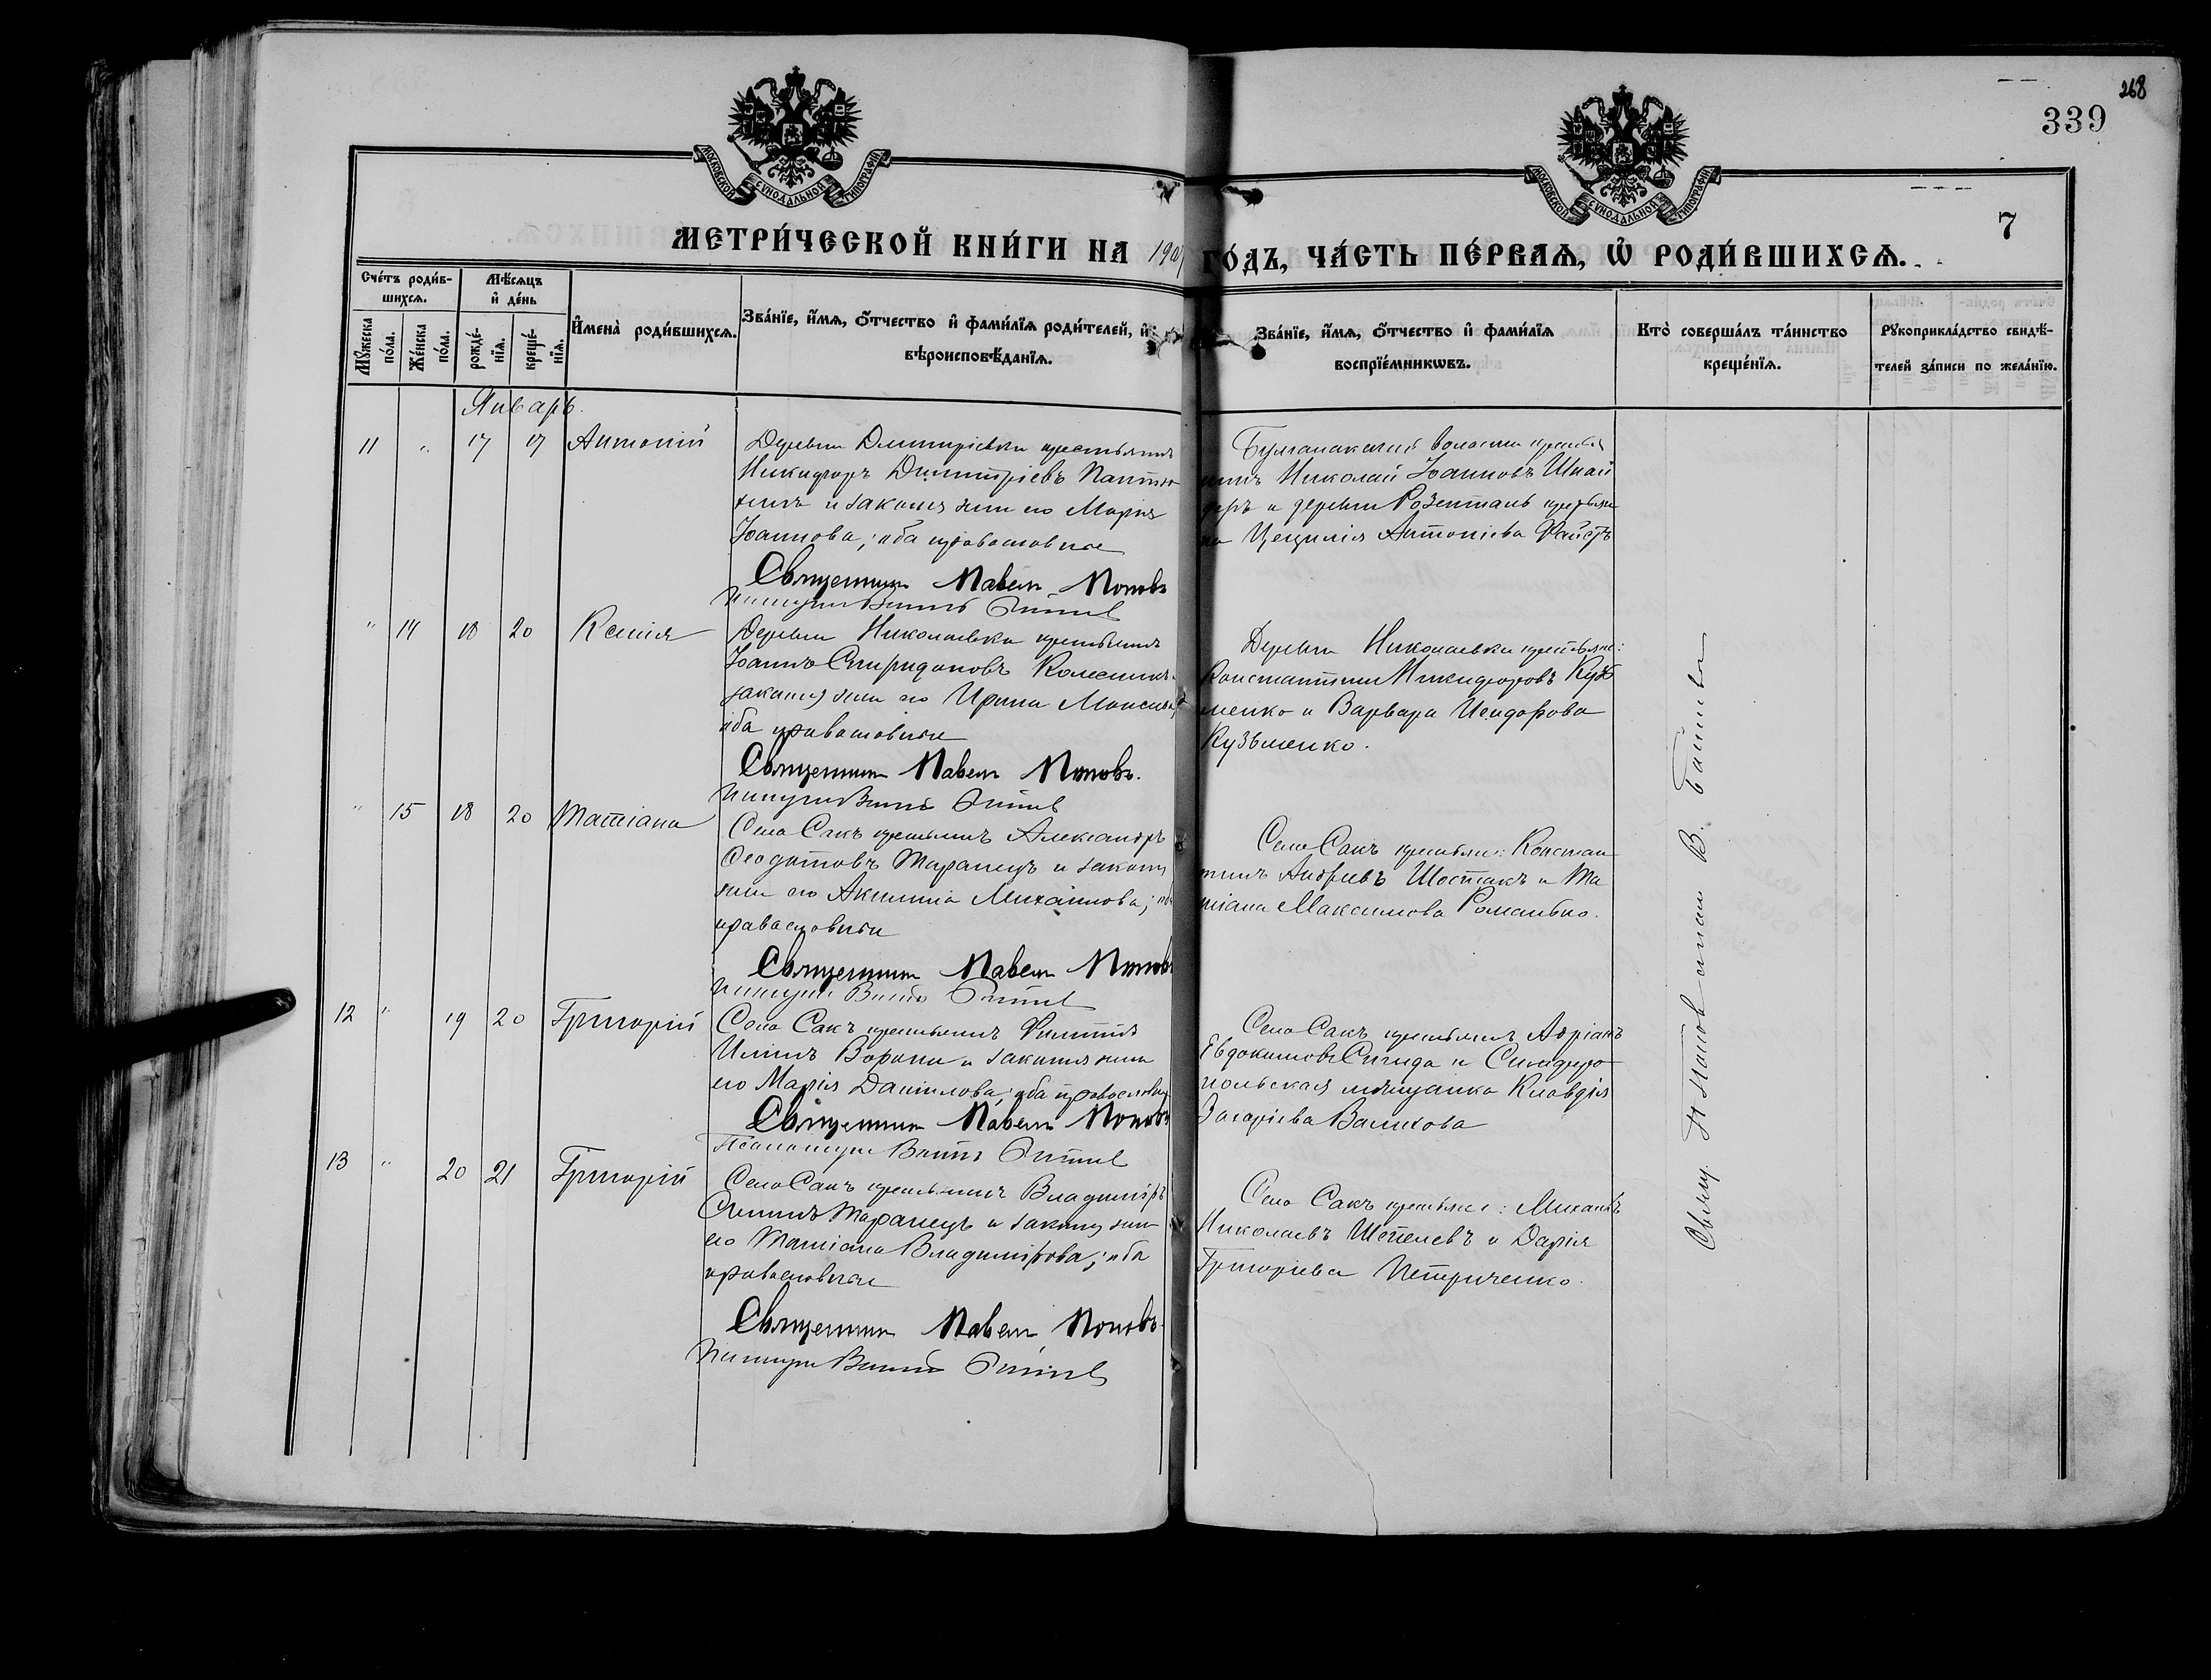 268
339
7
МОСКОВСКОЙ СѴНОДАЛЬНОЙ ТИПОГРАФІИ
МОСКОВСКОЙ СѴНОДАЛЬНОЙ ТИПОГРАФІИ
МЕТРИ́ЧЕСКОЙ КНИ́ГИ НА 190 ГО́ДЪ, ЧА́СТЬ ПЕ́РВАѦ, Ѡ҆ РОДИ́ВШИХСѦ.
Сче́тъ роди́в-
шихсѧ.
Мѣ́сѧцъ
и҆ де́нь
Мꙋ́жеска по́ла.
Же́нска по́ла.
рожде́-
нїѧ.
креще́-
нїѧ.
И҆мена̀ роди́вшихсѧ.
Зва́нїе, и҆́мѧ, ѻ҆́тчество и҆ фами́лїѧ роди́телей, и҆
вѣроисповѣ́данїѧ.
Зва́нїе, и҆́мѧ, ѻ҆́тчество и҆ фами́лїѧ
воспрїе́мникѡвъ.
Кто̀ соверша́лъ та́инство
креще́нїѧ.
Рꙋкоприкла́дство свидѣ́-
телей за́писи по жела́нїю.
Январь.
11 " 17 17 Антоній
Деревни Димитріевки крестьянинъ
Никифоръ Димитріевъ
и законная жена его Марія
Іоаннова; оба православные
Священникъ Павелъ Поповъ
волости крестья
нинъ Николай Іоанновъ Шнай
деръ и деревни Розенталь крестьян
ка Цецилія Антоніева
" 14 18 20 Ксенія
Деревни Николаевки крестьянинъ
Іоаннъ Спиридоновъ
законная жена его Ирина
оба православные
Священникъ Павелъ Поповъ.
Деревни Николаевки крестьяне:
Константинъ Никифоровъ Кузь
менко и Варвара Исидорова
Кузьменко.
" 15 18 20 Татіана
Села Сакъ крестьянинъ Александръ
Феодотовъ Таранецъ и законная
жена его Акилина Михаилова; оба
православные
Священникъ Павелъ Поповъ
Села Сакъ крестьяне: Констан
тинъ Андреевъ Шостакъ и Та
тіана Максимова
12 " 19 20 Григорій
Села Сакъ крестьянинъ Филиппъ
Ильинъ и законная жена
его Марія Даніилова; оба православные
Священникъ Павелъ Поповъ
Псаломщикъ
Села Сакъ крестьянинъ Адріанъ
Евдокимовъ и Симферо
польская мѣщанка Клавдія
Захаріева Валикова
13 " 20 21 Григорій
Села Сакъ крестьянинъ Владиміръ
Таранецъ и законная жена
его Татіана Владимірова; оба
православные
Священникъ Павелъ Поповъ
Села Сакъ крестьяне: Михаилъ
Николаевъ Шепелевъ и Дарія
Григоріева Петриченко.